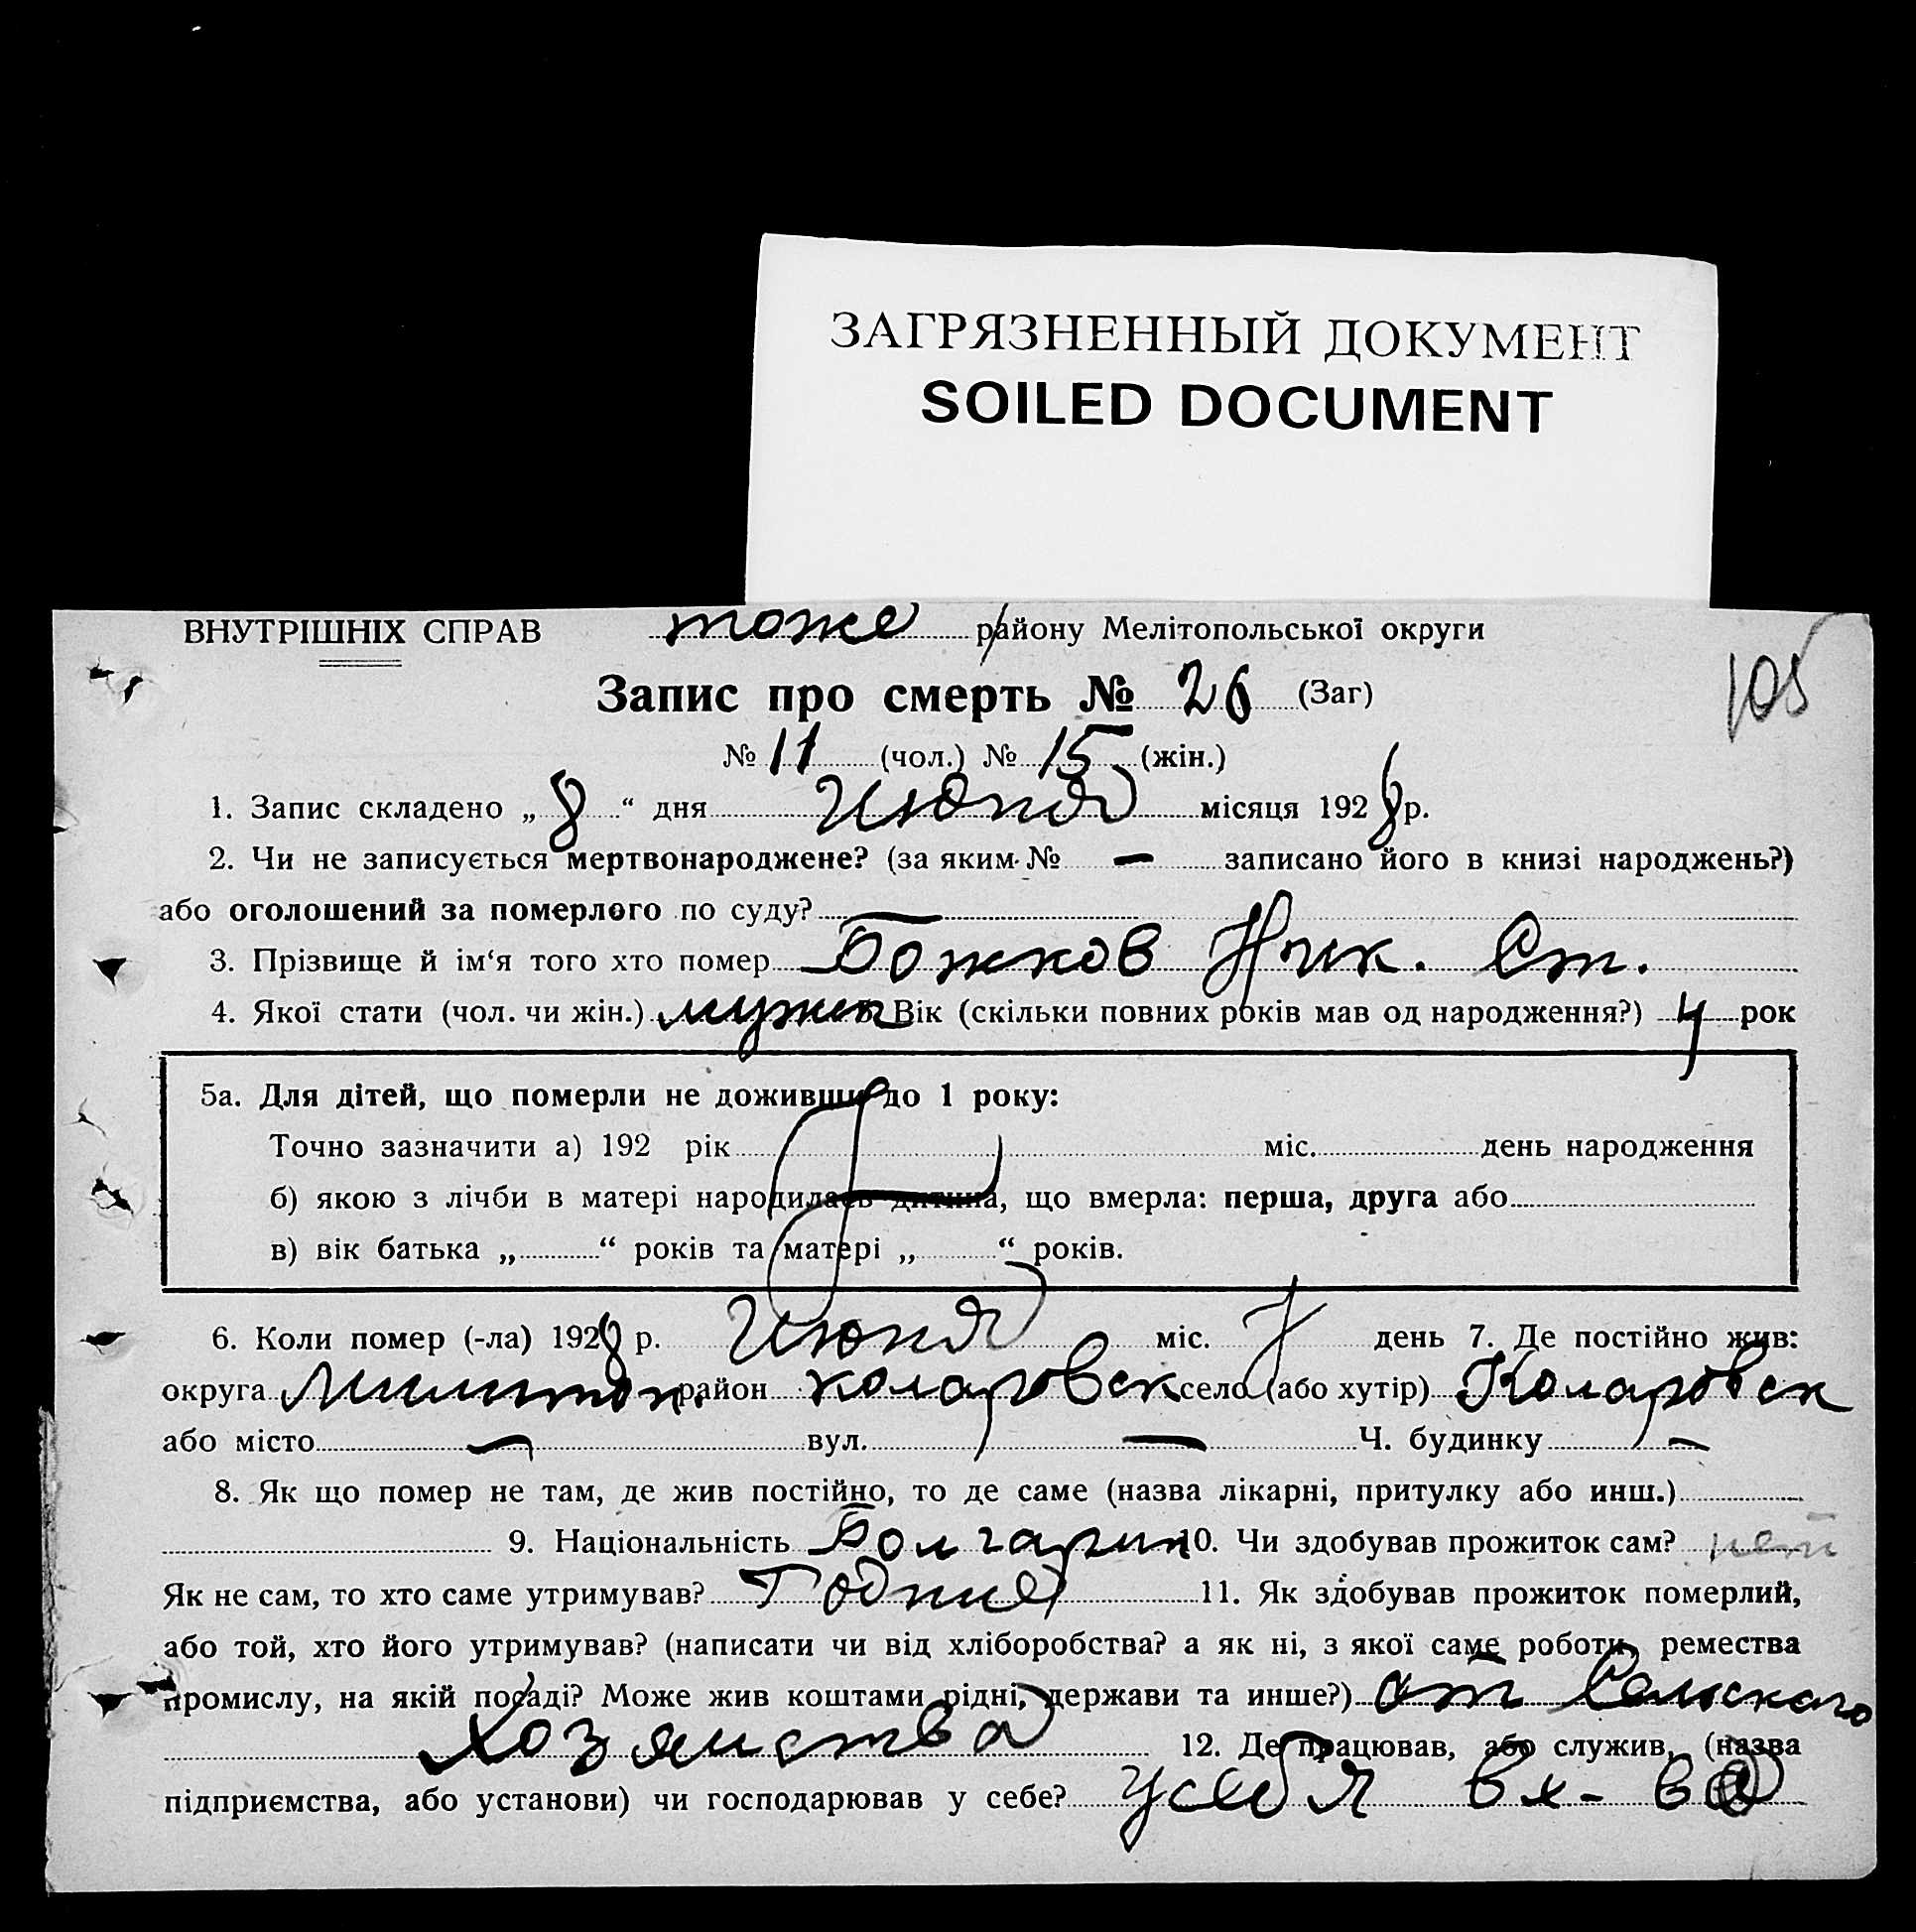 ЗАГРЯЗНЕННЫЙ ДОКУМЕНТ
SOILED DOCUMENT
ВНУТРІШНІХ СПРАВ тоже району Мелітопольської округи
105
Запис про смерть № 26 (Заг)
№ 11 (чол.) № 15 (жін.)
1. Запис складено „ 8 “ дня Июня місяця 1928 р.
2. Чи не записується мертвонароджене? (за яким № — записано його в книзі народжень?)
або оголошений за померлого по суду? —
3. Прізвище й ім‘я того хто помер Божков Ник. Ст.
4. Якої стати (чол. чи жін.) мужск 5. Вік (скільки повних років мав од народження?) 4 рок
5а. Для дітей, що померли не доживши до 1 року:
Точно зазначити а) 192 рік міс. день народження
б) якою з лічби в матері народилась дитина, що вмерла: перша, друга або
в) вік батька „ “ років та матері „ “ років.
6. Коли помер (-ла) 1928 р. Июня міс. 7 день 7. Де постійно жив:
округа Милитоп. район коларовск село (або хутір) Коларовск
або місто — вул. — Ч. будинку —
8. Як що помер не там, де жив постійно, то де саме (назва лікарні, притулку або инш.)
9. Національність Болгарин 10. Чи здобував прожиток сам? нет
Як не сам, то хто саме утримував? Родние 11. Як здобував прожиток померлий,
або той, хто його утримував? (написати чи від хліборобства? а як ні, з якої саме роботи, ремества
промислу, на якій посаді? Може жив коштами рідні, держави та инше?) от Сельскаго
хозяиства 12. Де працював, або служив, (назва
підприємства, або установи) чи господарював у себе? у себя в х-ва